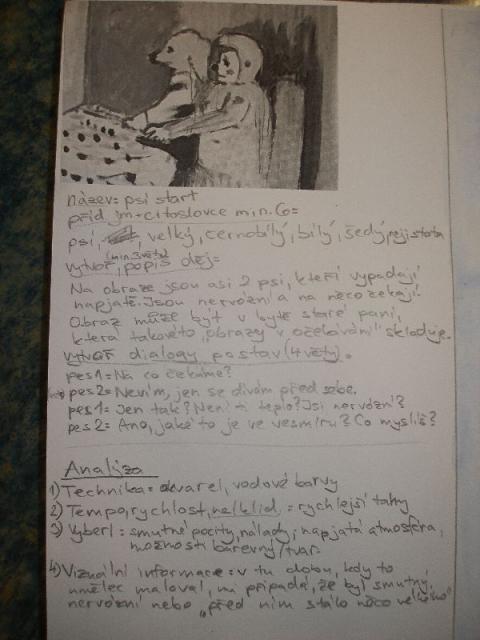 název= psí start
příd. jm+citoslovce min.6=
psí, velký, černobílý, bílý, šedý, nejistota
(min.3 věty)
vytvoř, popiš děj=
Na obraze jsou asi 2 psi, kteří vypadají
napjatě. Jsou nervózní a na něco čekají.
Obraz může být v bytě staré paní,
která takovéto „obrazy v očekávání" skladuje.
vytvoř dialogy postav (4 věty).
pes1= Na co čekáme?
pes2= Nevím, jen se dívám před sebe.
pes1= Jen tak? Není ti teplo? Jsi nervózní?
pes2= Ano, jaké to je ve vesmíru? Co myslíš?
Analýza
1) Technika= akvarel, vodové barvy
2) Tempo, rychlost, neklid = rychlejší tahy
3) Výběr = smutné pocity, nálady, napjatá atmosféra,
možnosti barevný/tvar.
4) Vizuální informace= v tu dobu, kdy to
umělec maloval, mi připadá, že byl smutný,
nervózní nebo „před ním stálo něco velkého"